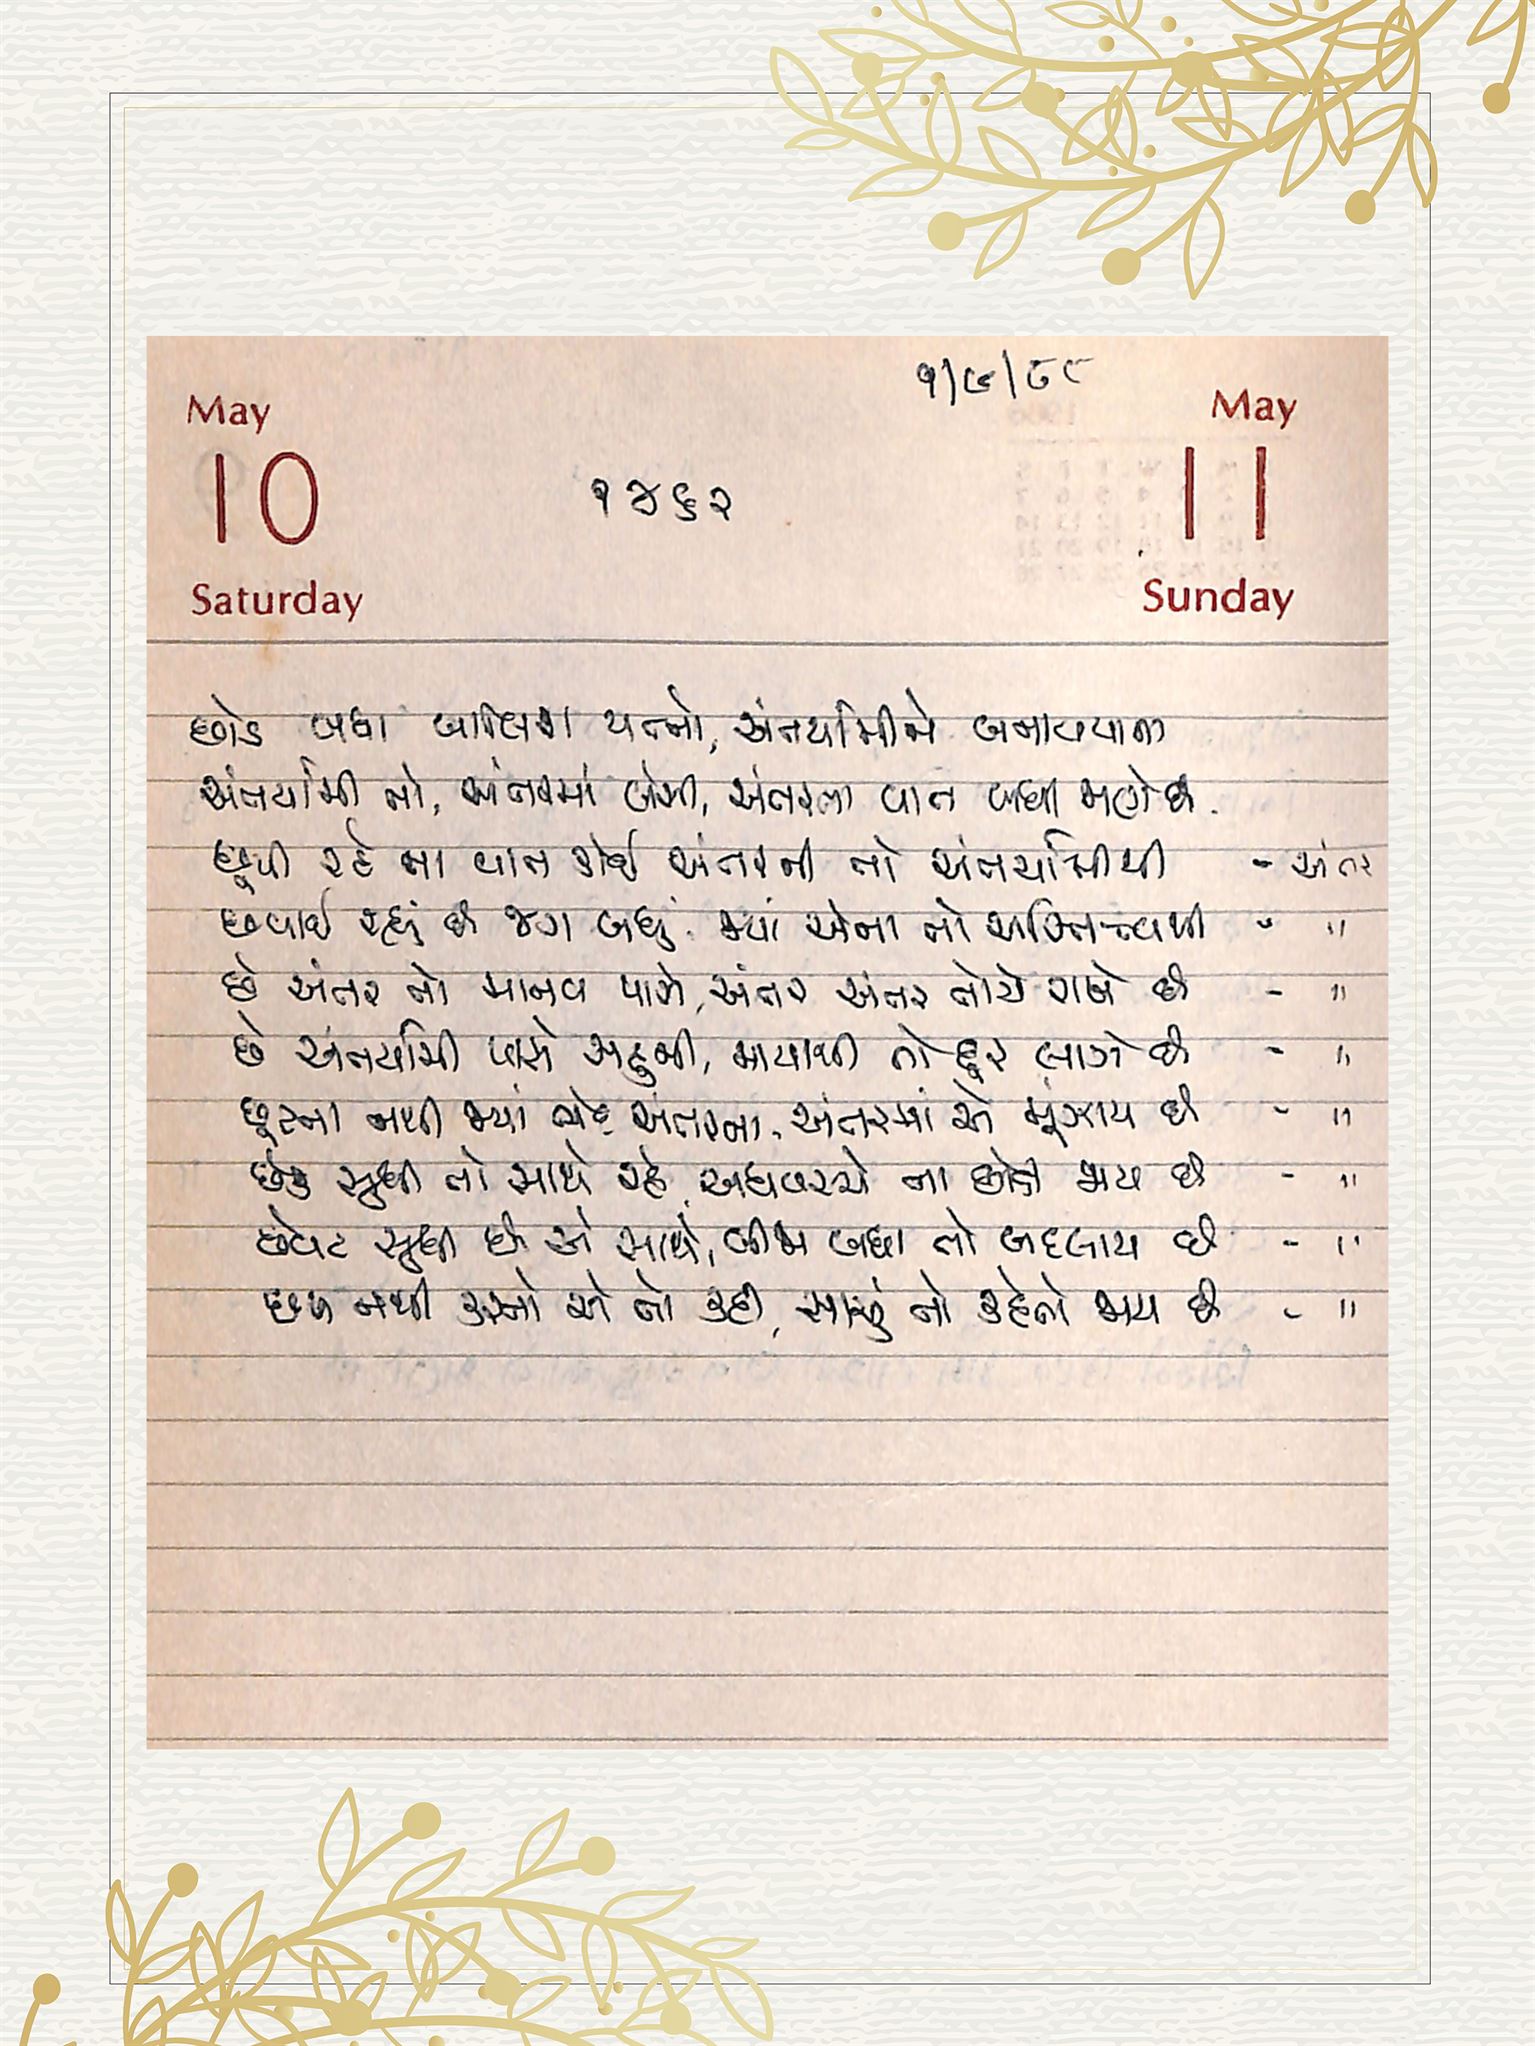 ૧/૯/૮૮
May
May
10
૧૪૬૨
11
Saturday
Sunday
છોડ બધા બાલિશ યત્નો, અંતર્યામીને બનાવવાના
અંતર્યામી તો, અંતરમાં બેસી, અંતરના વાત બધી જાણે છે.
છૂપી રહે ના વાત કોઈ અંતરની તો અંતર્યામીથી - અંતર
છવાઈ રહ્યું છે જગ બધું. જ્યાં એના તો અસ્તિત્વથી - "
છે અંતર તો માનવ પાસે, અંતર અંતર તોયે રાખે છે - "
છે અંતર્યામી પાસે સહુની, માયાથી તો દૂર લાગે છે - "
છૂટતા નથી જ્યાં અંતરના, અંતરમાં એ મૂંઝાય છે - "
છેક સુધી તો સાથે રહે, અધવચ્ચે ના છોડી જાય છે - "
છેવટ સુધી છે એ સાથે, બીજા બધા તો બદલાય છે - "
છળ નથી કરતો એ તો કદી, સાચું તો કહેતો જાય છે - "